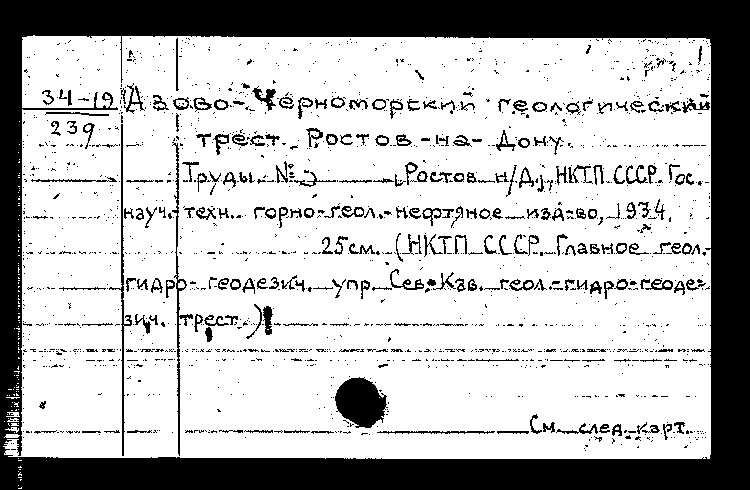 34-19 Азово-Черноморский геологический
239
трест. Ростов-на-Дону.
Труды. № [Ростов н/Д.], НКТП СССР. Гос.
науч.-техн. горно-геол.-нефтяное изд-во, 1934.
25см. (НКТП СССР. Главное геол.-
гидро-геодезич. упр. Сев-Кав. геол.-гидро-геоде-
зич. трест.)
См. след. карт.